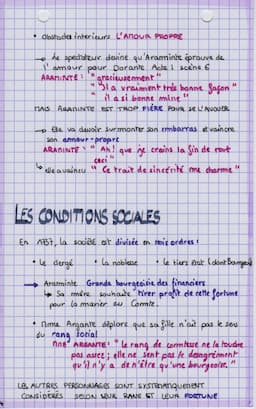 • Obstacles intérieurs L'AMOUR PROPRE
→ Le spectateur devine qu'Araminte éprouve de
l'amour pour Dorante Acte 1 scène 6
ARAMINTE : "gracieusement"
"Il a vraiment très bonne façon"
"il a si bonne mine"
MAIS ARAMINTE EST TROP FIÈRE POUR SE L'AVOUER
→ Elle va devoir surmonter son embarras et vaincre
son amour-propre
ARAMINTE : "Ah ! que je crains la fin de tout
ceci"
↳ elle a vaincu "Ce trait de sincérité me charme"
LES CONDITIONS SOCIALES
En 1737, la société est divisée en trois ordres :
• le clergé • la noblesse • le tiers état (dont Bourgeois)
→ Araminte Grande bourgeoisie des financiers
↳ Sa mère souhaite tirer profit de cette fortune
pour la marier au Comte.
• Mme Argante déplore que sa fille n'ait pas le sens
du rang social
Mme ARGANTE : "le rang de comtesse ne la touche
pas assez ; elle ne sent pas le désagrément
qu'il n'y a de n'être qu'une bourgeoise."
LES AUTRES PERSONNAGES SONT SYSTÉMATIQUEMENT
CONSIDÉRÉS SELON LEUR RANG ET LEUR FORTUNE